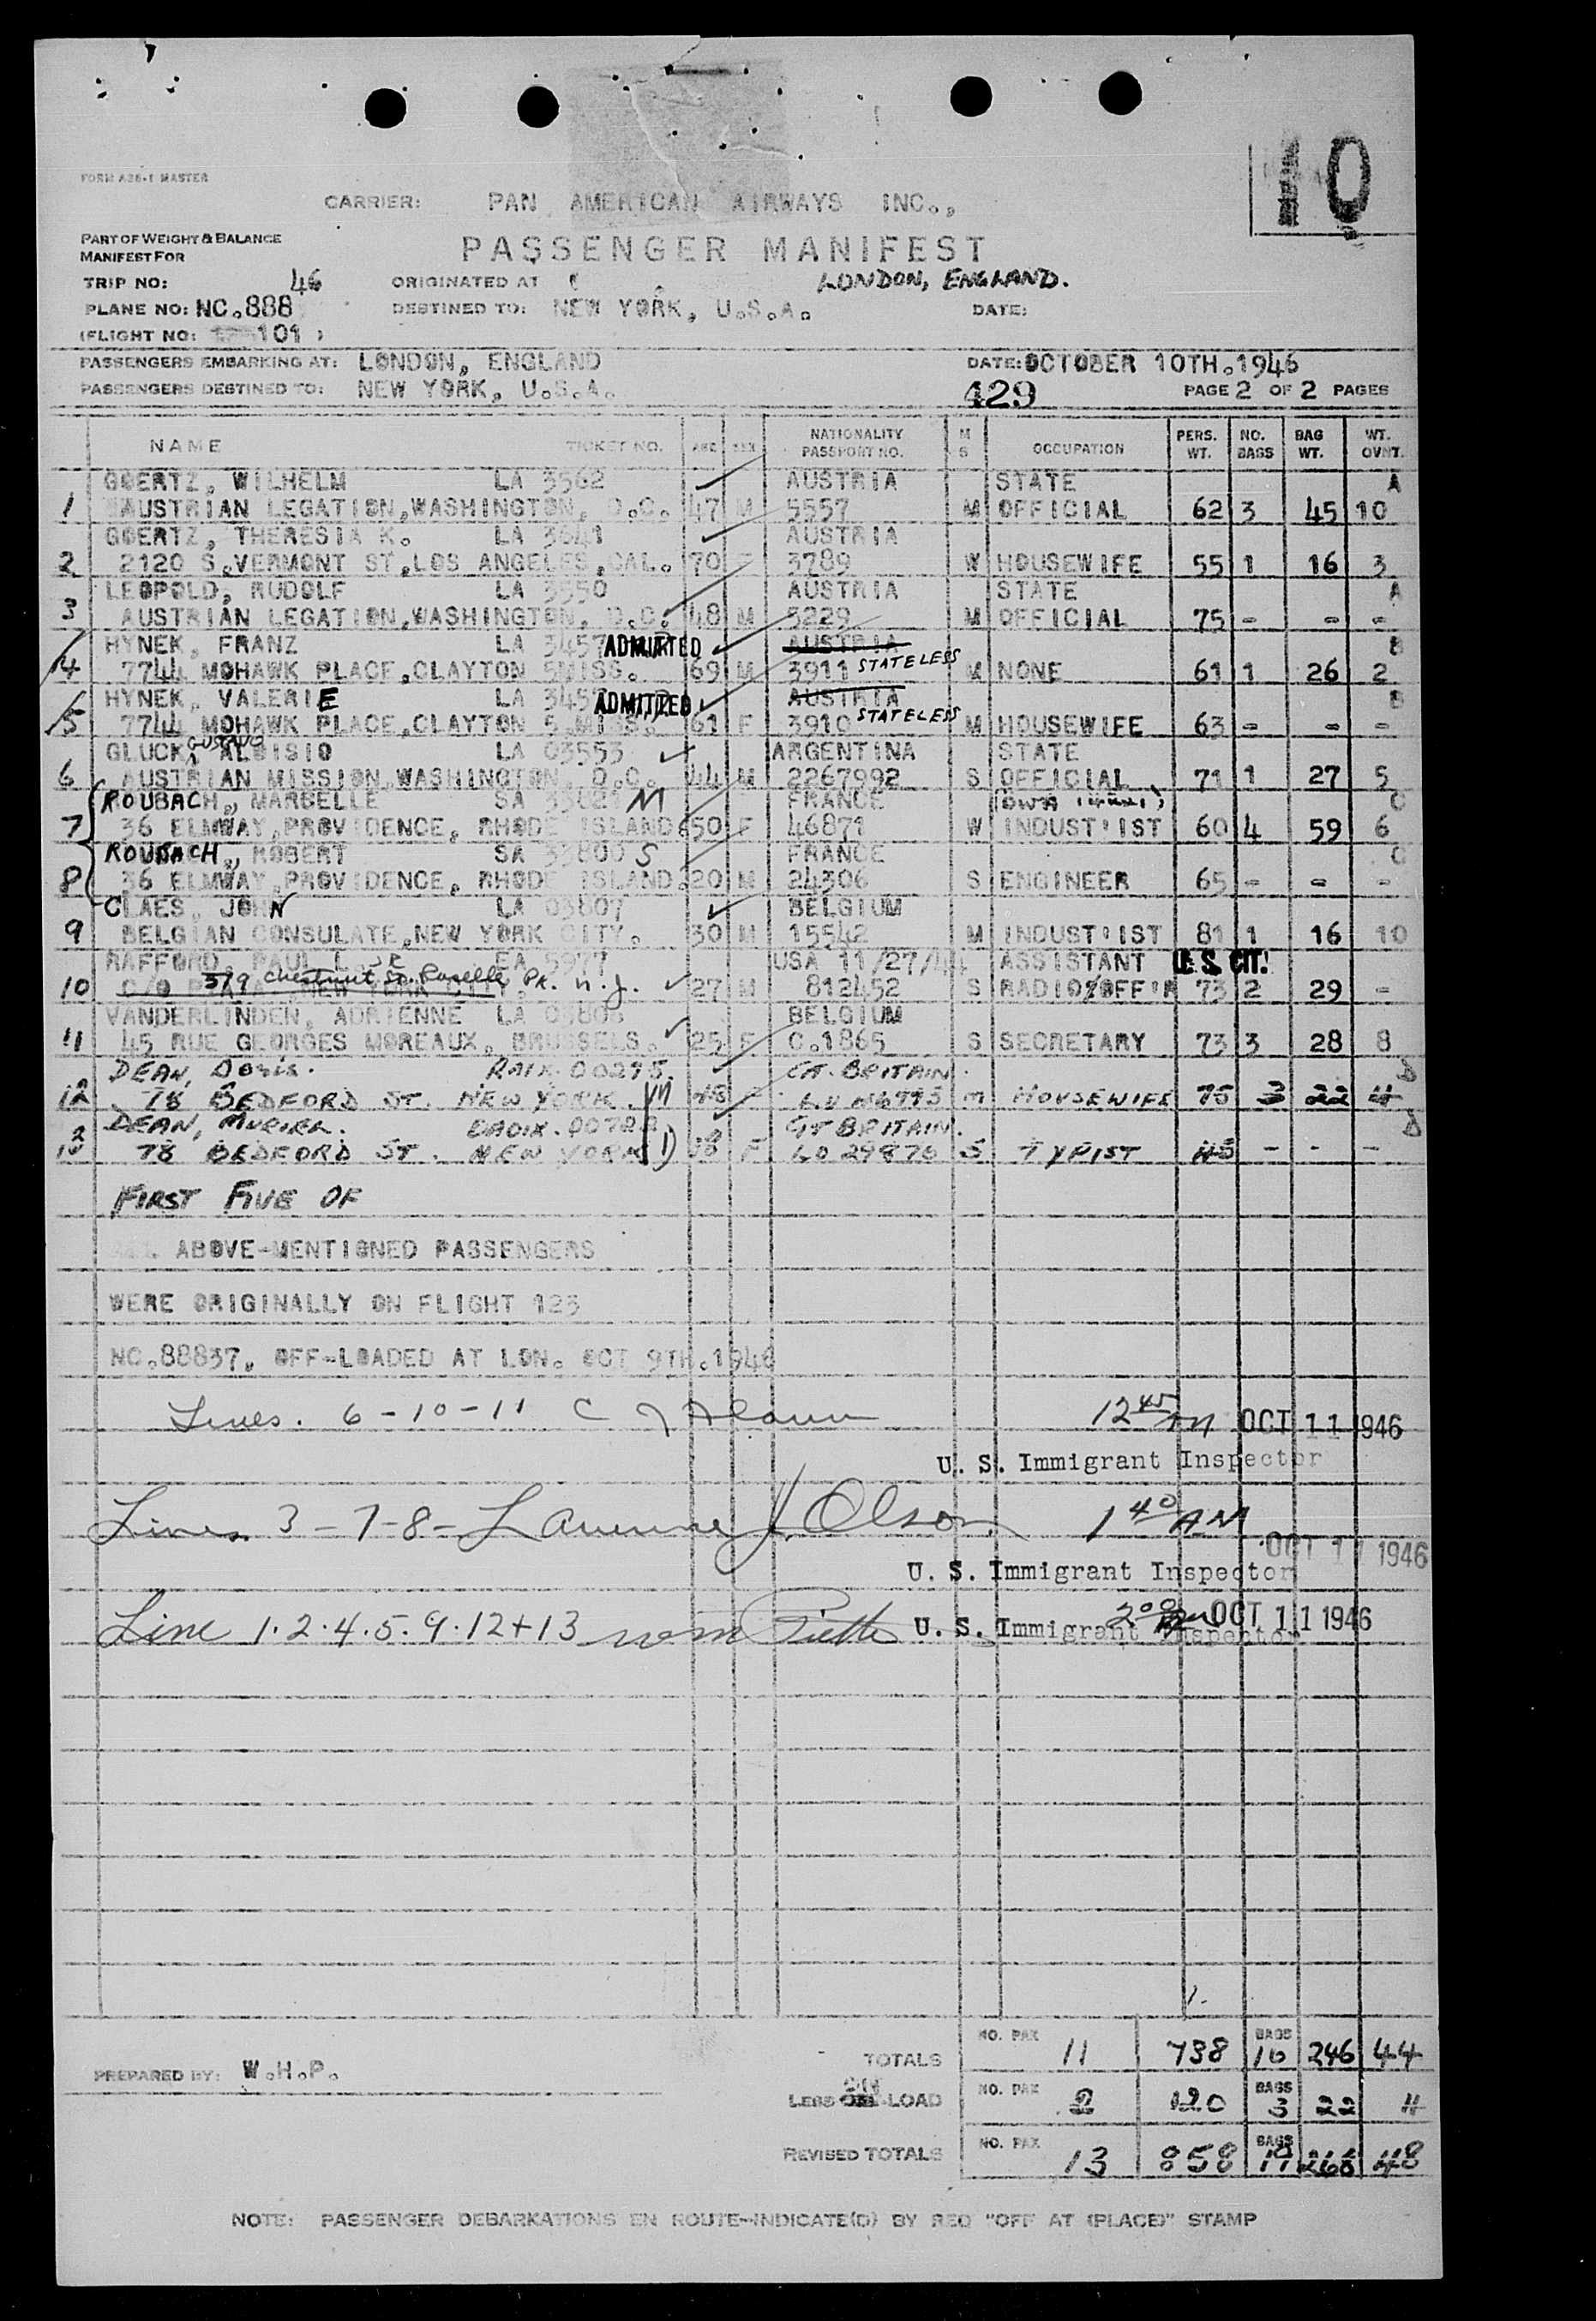 10
FORM A26-1 MASTER
CARRIER: PAN AMERICAN AIRWAYS INC.,
PART OF WEIGHT & BALANCE
MANIFEST FOR
PASSENGER MANIFEST
TRIP NO: 46 ORIGINATED AT LONDON, ENGLAND.
PLANE NO: NC.888 DESTINED TO: NEW YORK, U.S.A. DATE:
(FLIGHT NO: 101 )
PASSENGERS EMBARKING AT: LONDON, ENGLAND DATE: OCTOBER 10TH.1946
PASSENGERS DESTINED TO: NEW YORK, U.S.A. 429 PAGE 2 OF 2 PAGES
NAME TICKET NO. AGE SEX NATIONALITY PASSPORT NO. M S OCCUPATION PERS. WT. NO. BAGS BAG WT. WT. OVNT.
GOERTZ, WILHELM LA 3562 AUSTRIA STATE A
1 AUSTRIAN LEGATION,WASHINGTON, D.C. 47 M 5557 M OFFICIAL 62 3 45 10
GOERTZ, THERESIA K. LA 3641 AUSTRIA
2 2120 S.VERMONT ST,LOS ANGELES,CAL. 70 F 3789 W HOUSEWIFE 55 1 16 3
LEOPOLD, RUDOLF LA 3550 AUSTRIA STATE A
3 AUSTRIAN LEGATION,WASHINGTON, D.C. 48 M 5229 M OFFICIAL 75 - - -
HYNEK, FRANZ LA 3457 ADMITTED AUSTRIA B
4 7744 MOHAWK PLACE,CLAYTON 5MISS. 69 M 3911 STATELESS M NONE 61 1 26 2
HYNEK, VALERIE LA 345 ADMITTED AUSTRIA B
5 7744 MOHAWK PLACE,CLAYTON 5.MISS. 61 F 3910 STATELESS M HOUSEWIFE 63 - - -
GLUCK, GUSTAVO ALOISIO LA 03553 ARGENTINA STATE
6 AUSTRIAN MISSION,WASHINGTON, D.C. 44 M 2267992 S OFFICIAL 71 1 27 5
ROUBACH, MARBELLE SA M FRANCE C
7 36 ELMWAY,PROVIDENCE, RHODE ISLAND 50 F 46871 W INDUST'IST 60 4 59 6
ROUBACH, ROBERT SA 33800 S FRANCE C
8 36 ELMWAY,PROVIDENCE, RHODE ISLAND. 20 M 24306 S ENGINEER 65 - - -
CLAES, JOHN LA 03807 BELGIUM
9 BELGIAN CONSULATE,NEW YORK CITY. 30 M 15542 M INDUST'IST 81 1 16 10
RAFFORD, PAUL L JR EA 5977 USA 11/27/44 ASSISTANT U.S. CIT.
10 379 Chestnut St. Roselle Pk. N.J. 27 M 812452 S RADIO/OFF'R 73 2 29 -
VANDERLINDEN, ADRIENNE LA BELGIUM
11 45 RUE GEORGES MOREAUX, BRUSSELS. 25 F C.1865 S SECRETARY 73 3 28 8
DEAN, Doris. 00295. GT. BRITAIN. D
12 78 BEDFORD ST. NEW YORK. m HOUSEWIFE 75 3 22 4
DEAN, MURIEL. GT BRITAIN. D
13 78 BEDFORD ST. NEW YORK F LO 29876 S TYPIST 45 - - -
FIRST FIVE OF
ABOVE-MENTIONED PASSENGERS
WERE ORIGINALLY ON FLIGHT 123
NC.88837, OFF-LOADED AT LON. OCT 9TH.1946
Lines. 6-10-11 12 45 AM OCT 11 1946
U. S. Immigrant Inspector
Lines 3-7-8- Lawrence J. Olson 1 40 AM OCT 11 1946
U. S. Immigrant Inspector
Line 1.2.4.5.9.12+13 2 00 OCT 11 1946
U. S. Immigrant Inspector
PREPARED BY: W.H.P.
TOTALS NO. PAX 11 738 BAGS 16 246 44
LESS LOAD NO. PAX 2 120 BAGS 3 22 4
REVISED TOTALS NO. PAX 13 858 BAGS 19 268 48
NOTE: PASSENGER DEBARKATIONS EN ROUTE-INDICATE(D) BY RED "OFF AT (PLACE)" STAMP